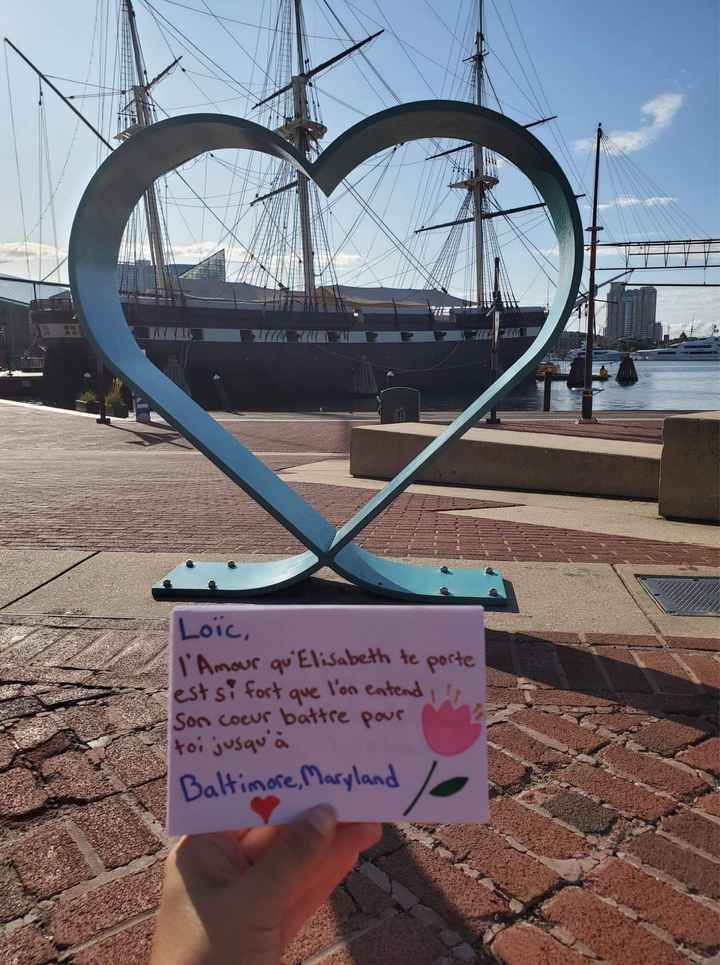 Loïc,
l'Amour qu'Elisabeth te porte
est si fort que l'on entend
son coeur battre pour
toi jusqu'à
Baltimore, Maryland